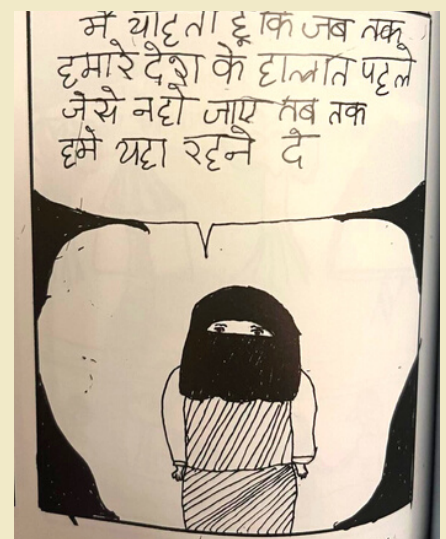 मैं चाहती हूँ कि जब तक
हमारे देश के हालात पहले
जैसे नहो जाए तब तक
हमे यहा रहने दे